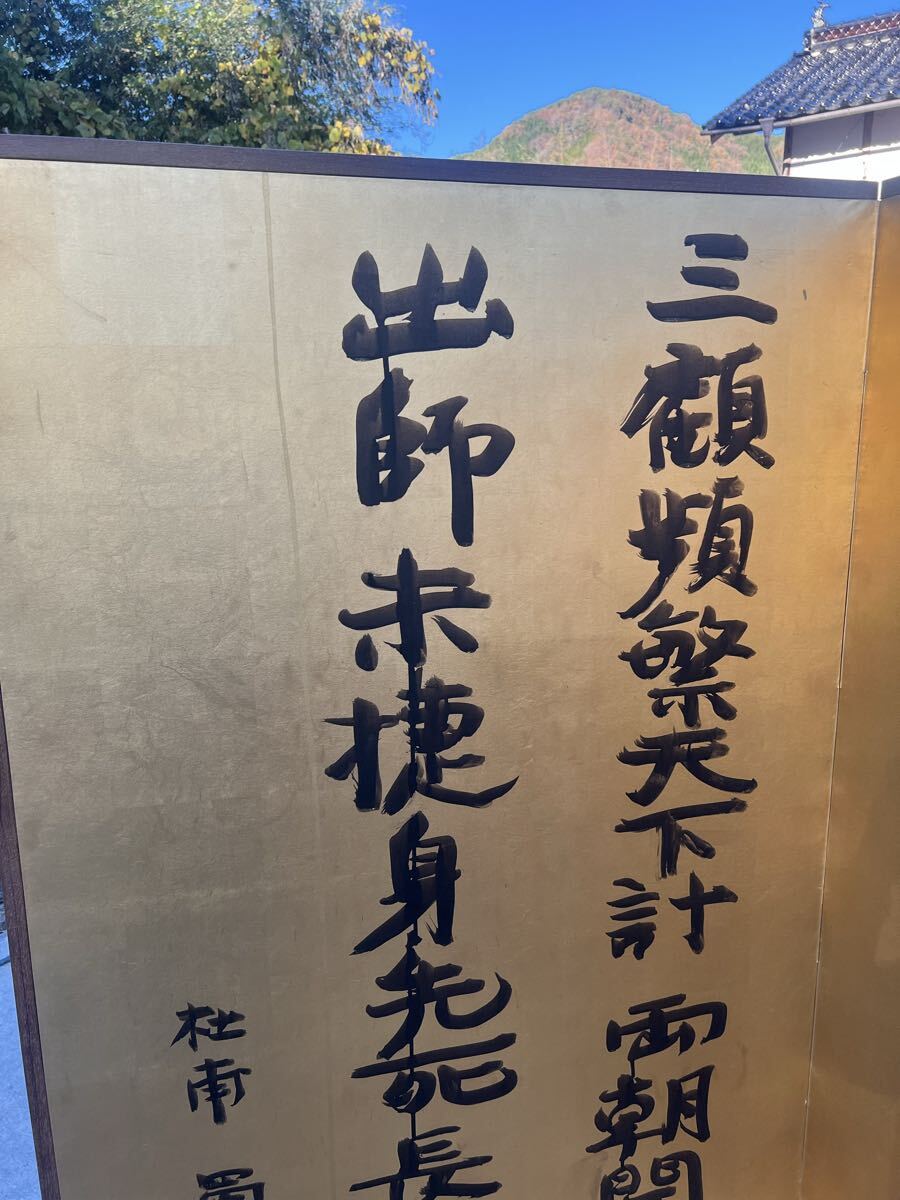 三顧頻繁天下計 両朝開
出師未捷身先死長
杜甫 蜀